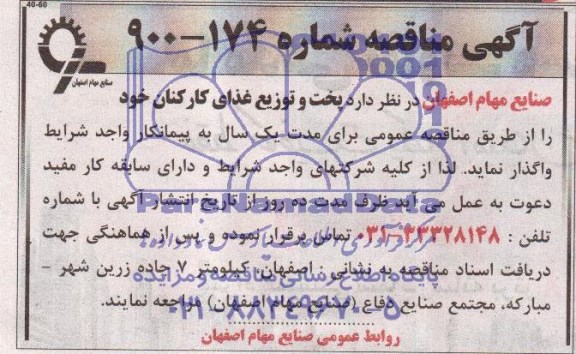 40-60
آگهی مناقصه شماره ۱۷۴-۹۰۰
صنایع مهام اصفهان
صنایع مهام اصفهان در نظر دارد پخت و توزیع غذای کارکنان خود
را از طریق مناقصه عمومی برای مدت یک سال به پیمانکار واجد شرایط
واگذار نماید. لذا از کلیه شرکتهای واجد شرایط و دارای سابقه کار مفید
دعوت به عمل می آید ظرف مدت ده روز از تاریخ انتشار آگهی با شماره
تلفن : ۳۳۳۲۸۱۴۸-۰۳۱ تماس برقرار نموده و پس از هماهنگی جهت
دریافت اسناد مناقصه به نشانی : اصفهان، کیلومتر ۷ جاده زرین شهر -
مبارکه، مجتمع صنایع دفاع (صنایع مهام اصفهان) مراجعه نمایند.
روابط عمومی صنایع مهام اصفهان
ParsNamadData
پایگاه اطلاع رسانی مناقصه و مزایده
۰۲۱-۸۸۳۴۹۶۷۰-۵